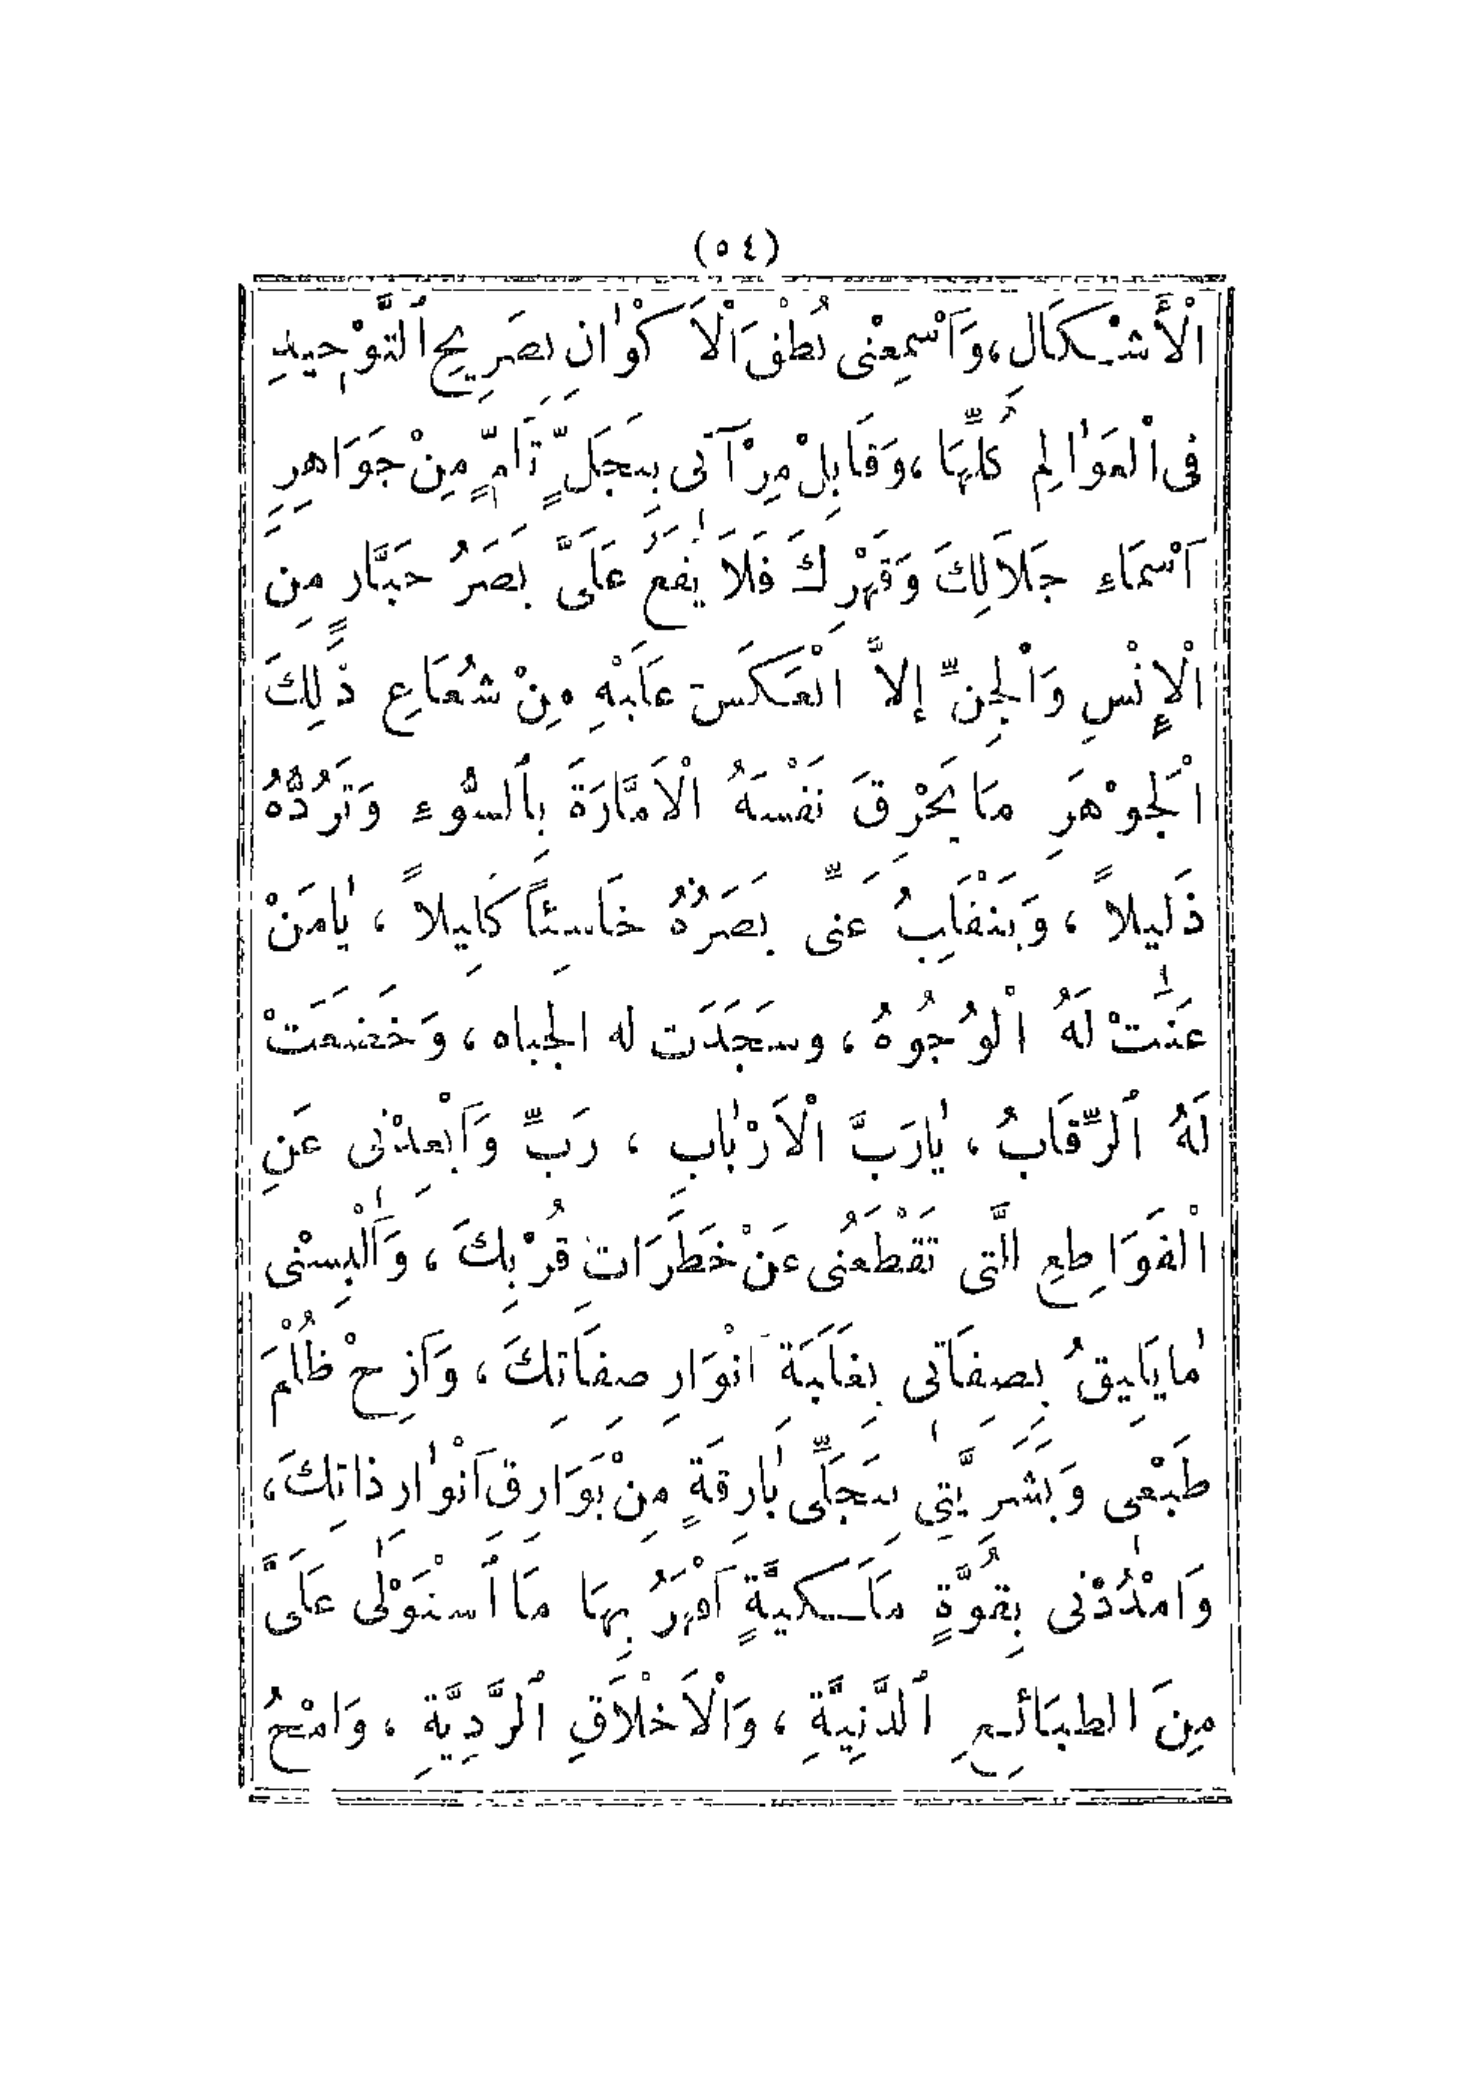 (٥٤)
اْلأَشْكَالِ، وَاَسْمِعْنى نُطْقَ اْلاَكْوٰانِ بِصَرِيحِ ٱلتَّوْحِيدِ
فى اْلعَوٰالِمِ كُلِّهَا، وَقَابِلْ مِرْآتى بِتَجَلٍّ تَامٍّ مِنْ جَوَاهِرِ
اَسْمَاءِ جَلَالِكَ وَقَهْرِكَ فَلاَ يَقَعُ عَلَىَّ بَصَرُ جَبَّارٍ مِنِ
اْلإِنْسِ وَاْلجِنِّ إلاَّ انْعَكَسَ عَلَيْهِ مِنْ شُعَاعِ ذٰلِكَ
اْلجَوْهَرِ مَا يَحْرِقَ نَفْسَهُ اْلاَمَّارَةَ بِٱلسُّوءِ وَتَرُدُّهُ
ذَلِيلاً، وَيَنْقَلِبُ عَنِّى بَصَرُهُ خَاسِئًا كَلِيلاً، يٰامَنْ
عَنَتْ لَهُ اْلوُجُوهُ، وسَجَدَت له الجباه، وَخَضَعَتْ
لَهُ ٱلرِّقَابُ، يٰارَبَّ اْلاَرْبٰابِ، رَبِّ وَاَبْعِدْنى عَنِ
اْلقَوَاطِعِ الَّتى تَقْطَعُنى عَنْ خَطَرَاتِ قُرْبِكَ، وَاَلْبِسْنى
مٰا يَلِيقُ بِصِفَاتى بِغَلَبَةِ اَنْوَارِ صِفَاتِكَ، وَاَزِحْ ظُلْمَ
طَبْعى وَبَشَرِيَّتِي بِتَجَلِّى بٰارِقَةٍ مِنْ بَوَارِقِ اَنْوٰارِ ذاتِكَ،
وَامْدُدْنى بِقُوَّةٍ مَلَكيَّةٍ اَقْهَرُ بِهَا مَا ٱسْتَوْلٰى عَلَىَّ
مِنَ الطبَائِعِ ٱلدَّنِيَّةِ، وَاْلاَخْلاَقِ ٱلرَّدِيَّةِ، وَامْحُ